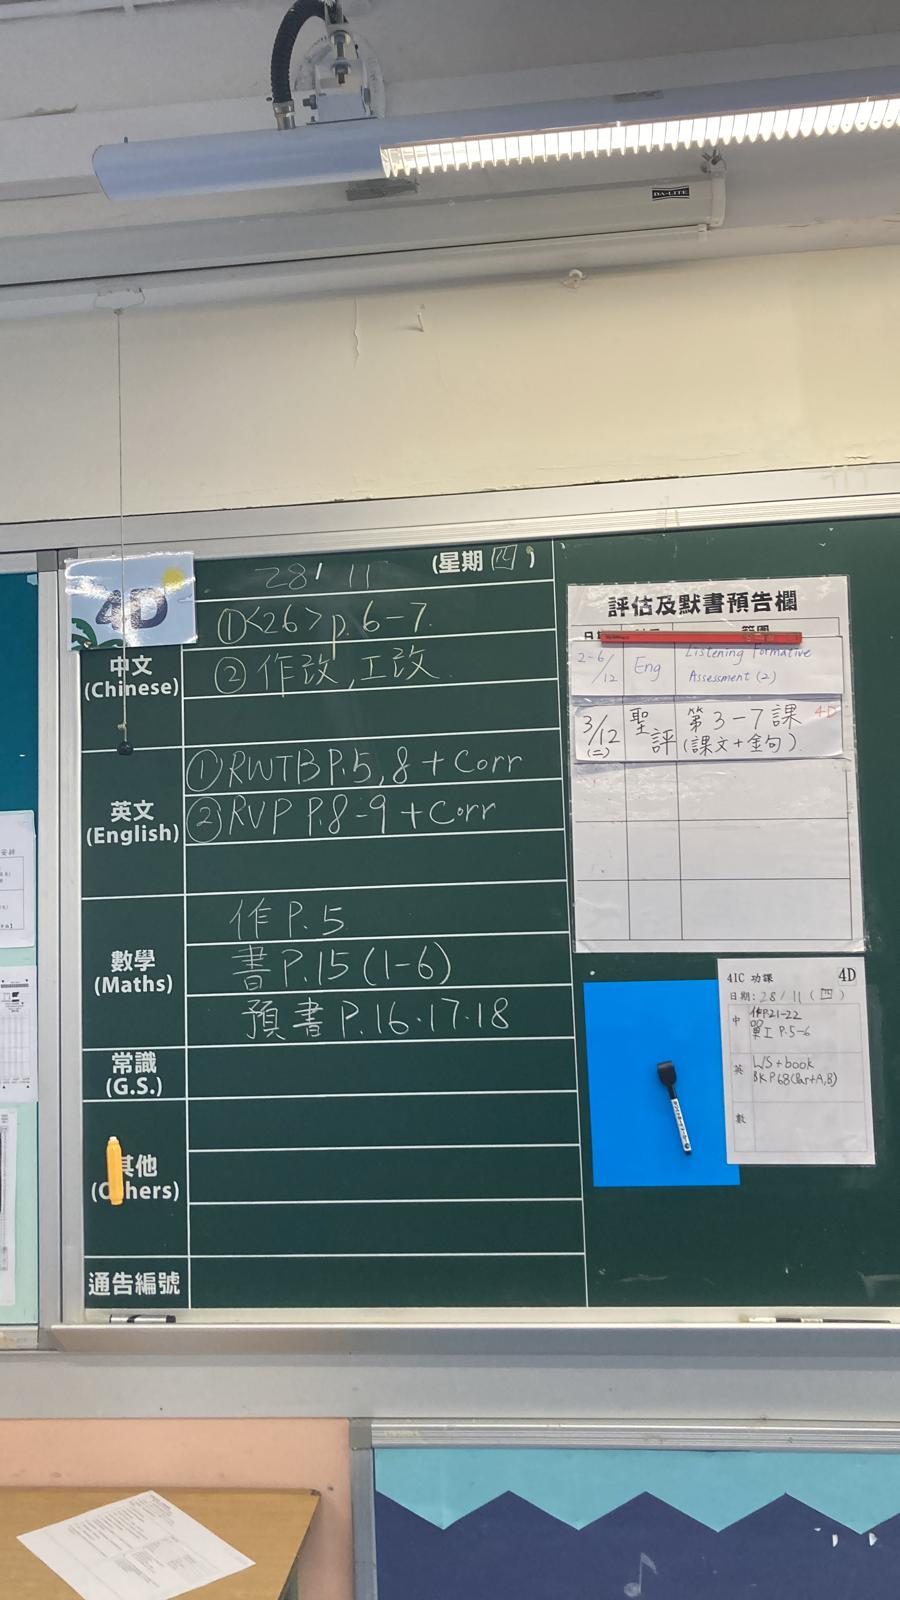 DA-LITE
4D
28/11
(星期四)
中文
(Chinese)
①<26> p.6-7.
②作改,工改.
英文
(English)
①RWTB P.5,8 + Corr
②RVP P.8-9 + Corr
數學
(Maths)
作 P.5
書 P.15 (1-6)
預書 P.16.17.18
常識
(G.S.)
其他
通告編號
評估及默書預告欄
2-6/12 Eng Listening Formative
Assessment (2)
3/12 (二) 聖評 第3-7課 4D
(課文+金句)
功課 4D
日期:28/11(四)
中 作P.21-22
工 P.5-6
英 WS+book
BK P68(Part A,B)
數